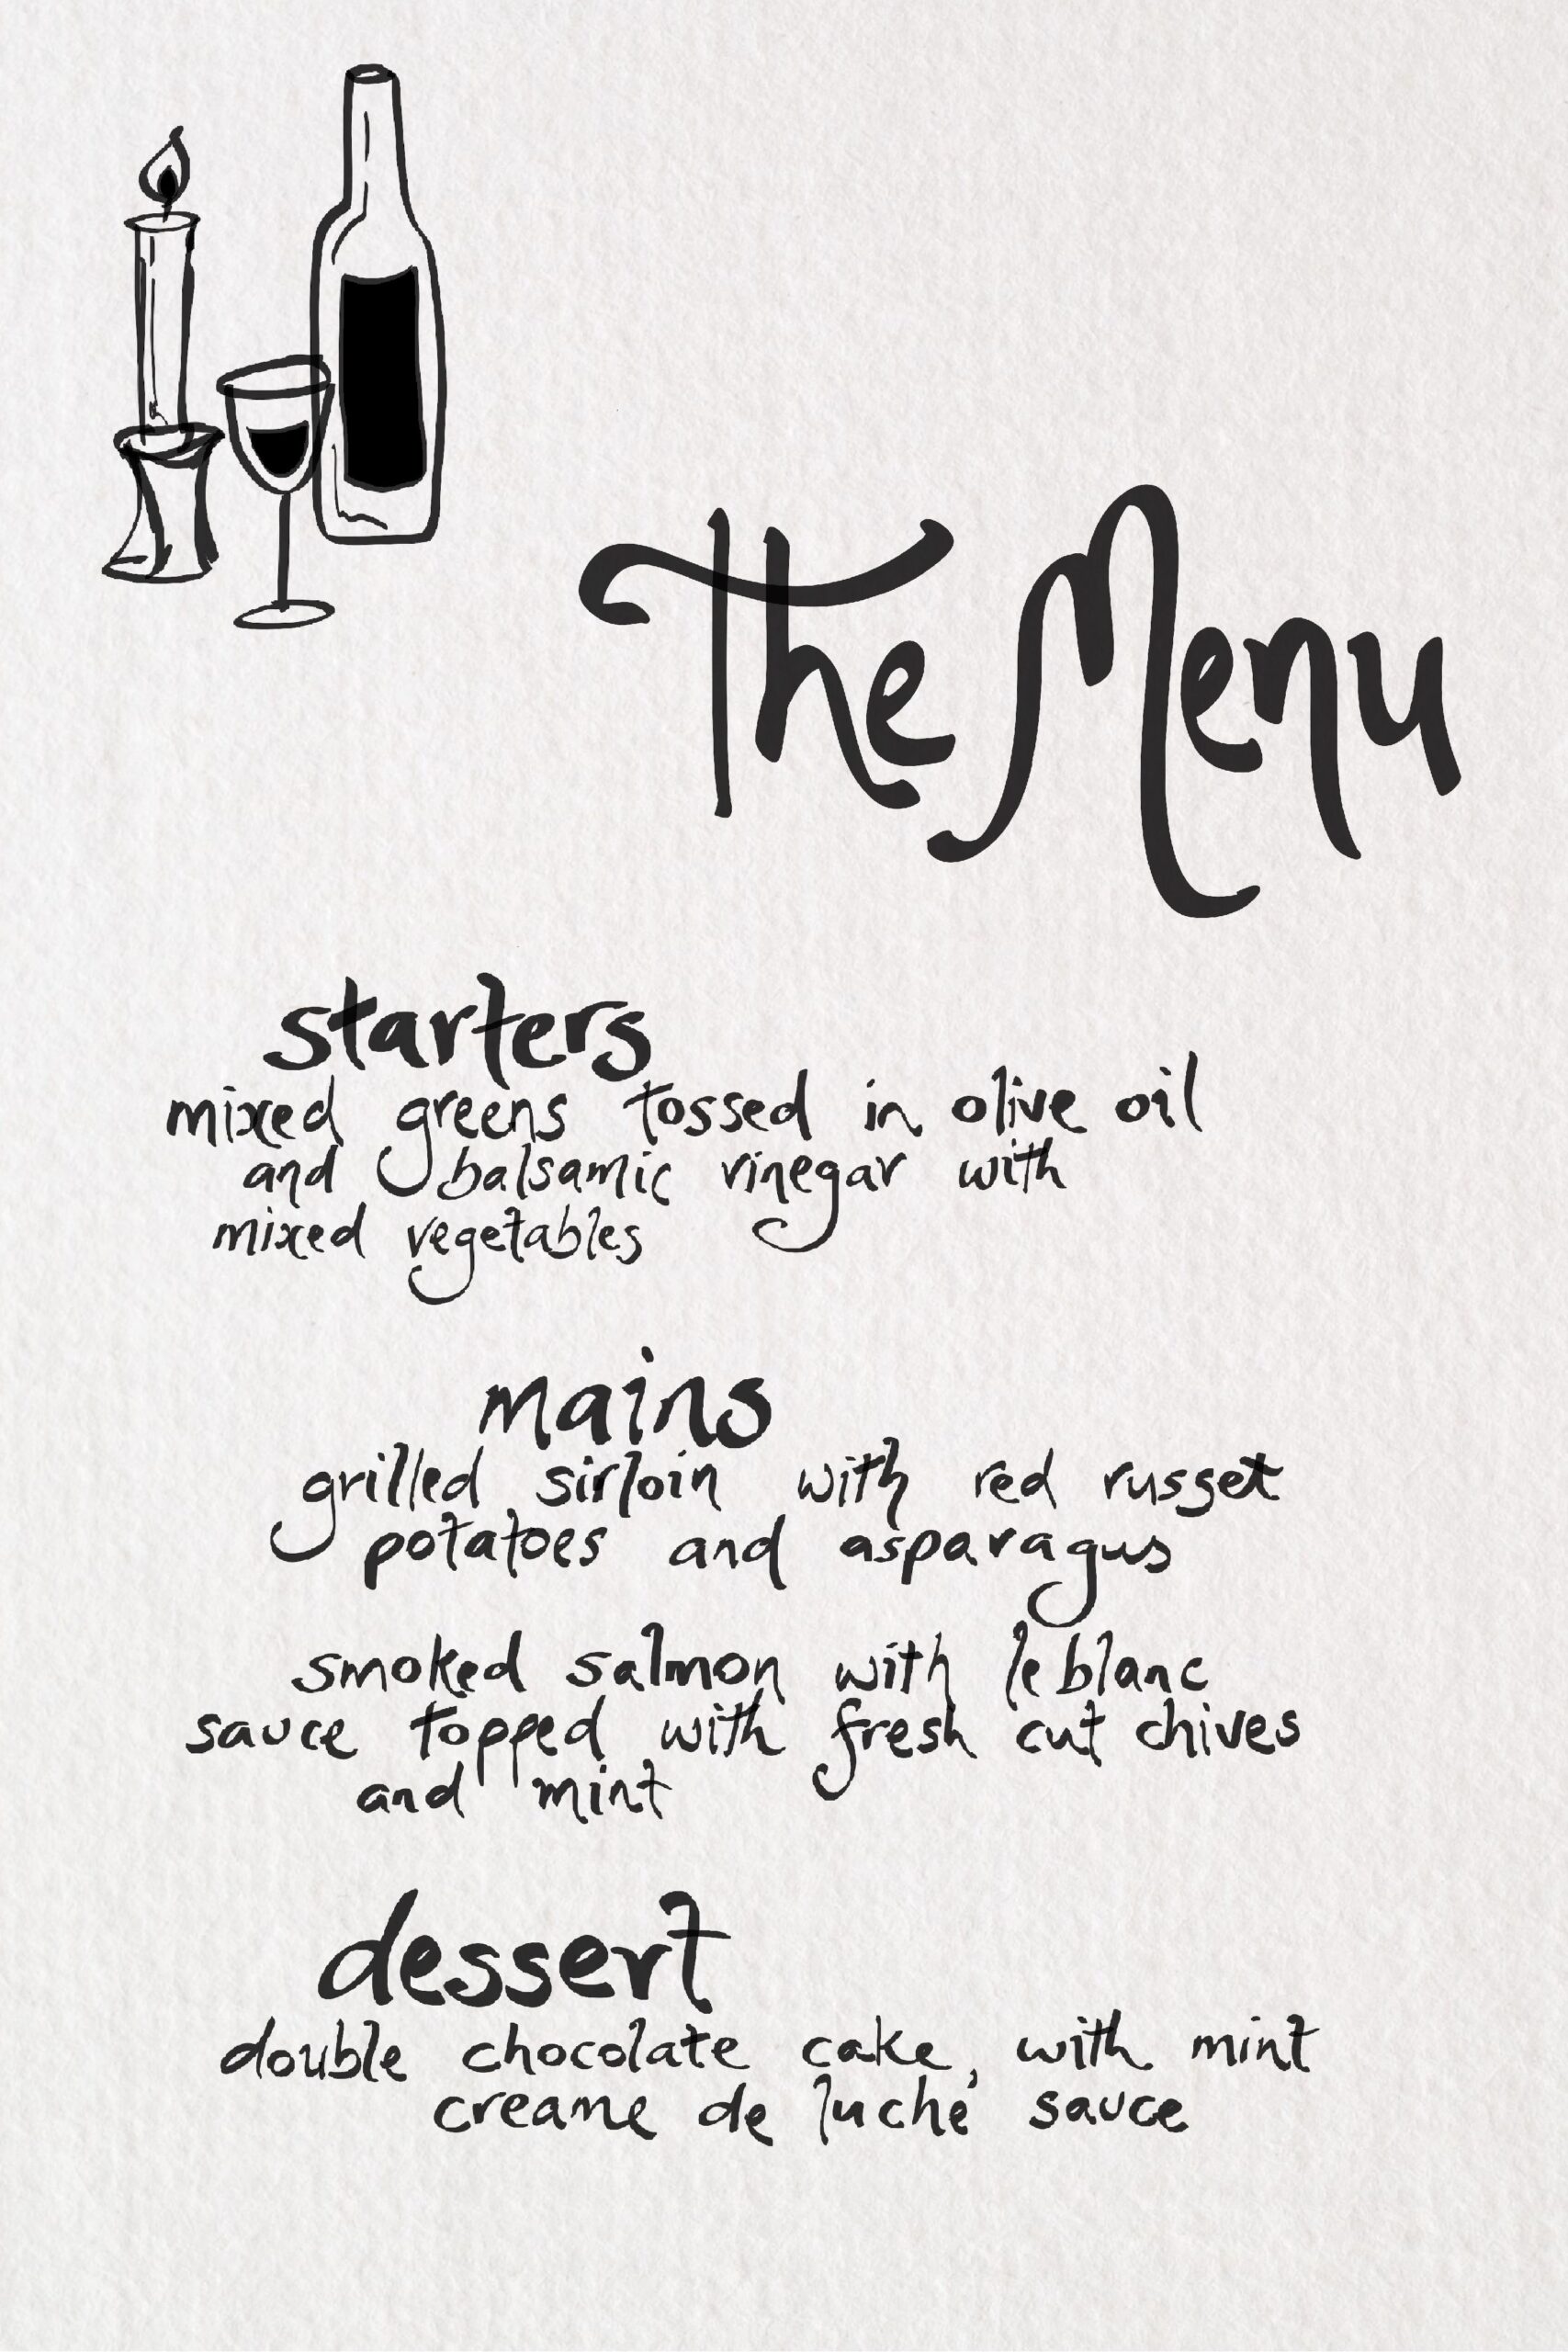 The Menu
starters
mixed greens tossed in olive oil
and balsamic vinegar with
mixed vegetables
mains
grilled sirloin with red russet
potatoes and asparagus
smoked salmon with le blanc
sauce topped with fresh cut chives
and mint
dessert
double chocolate cake, with mint
creame de luché sauce